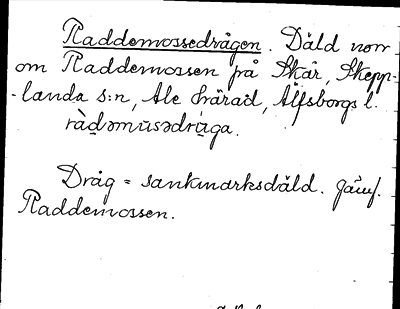 Raddemossedrågen. Däld norr
om Raddemossen på Skår, Skepp-
-landa s:n, Ale härad, Älfsborgs l.
ràd̯əmùsədrùga.
Dråg = sankmarksdäld. Jämf.
Raddemossen.